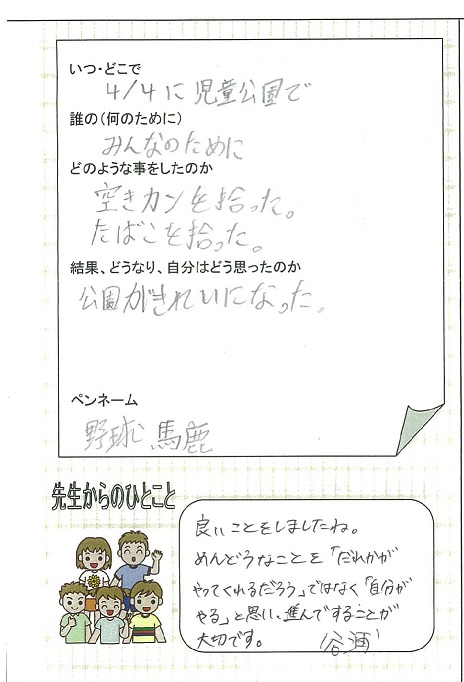 いつ・どこで
4/4に児童公園で
誰の(何のために)
みんなのために
どのような事をしたのか
空きカンを拾った。
たばこを拾った。
結果、どうなり、自分はどう思ったのか
公園がきれいになった。
ペンネーム
野球馬鹿
先生からのひとこと
良いことをしましたね。
めんどうなことを「だれかが
やってくれるだろう」ではなく「自分が
やる」と思い、進んですることが
大切です。